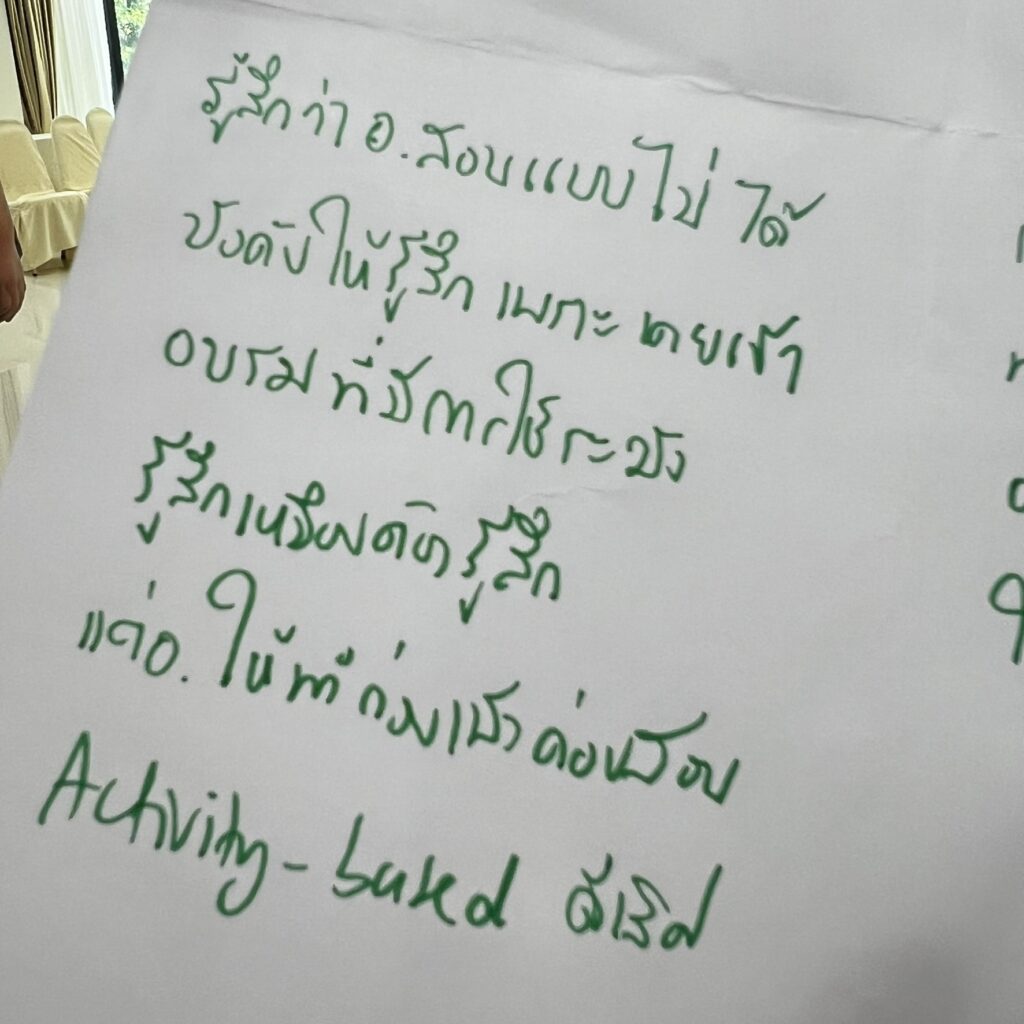 รู้สึกว่า อ.สอนแบบไม่ได้
บังคับให้รู้สึก เพราะเคยเข้า
อบรมที่มีการใช้ระฆัง
รู้สึกเหมือนคิด รู้สึก
แต่อ. ให้ทำก่อนแล้วค่อยสอน
Activity-based ดีเลิศ